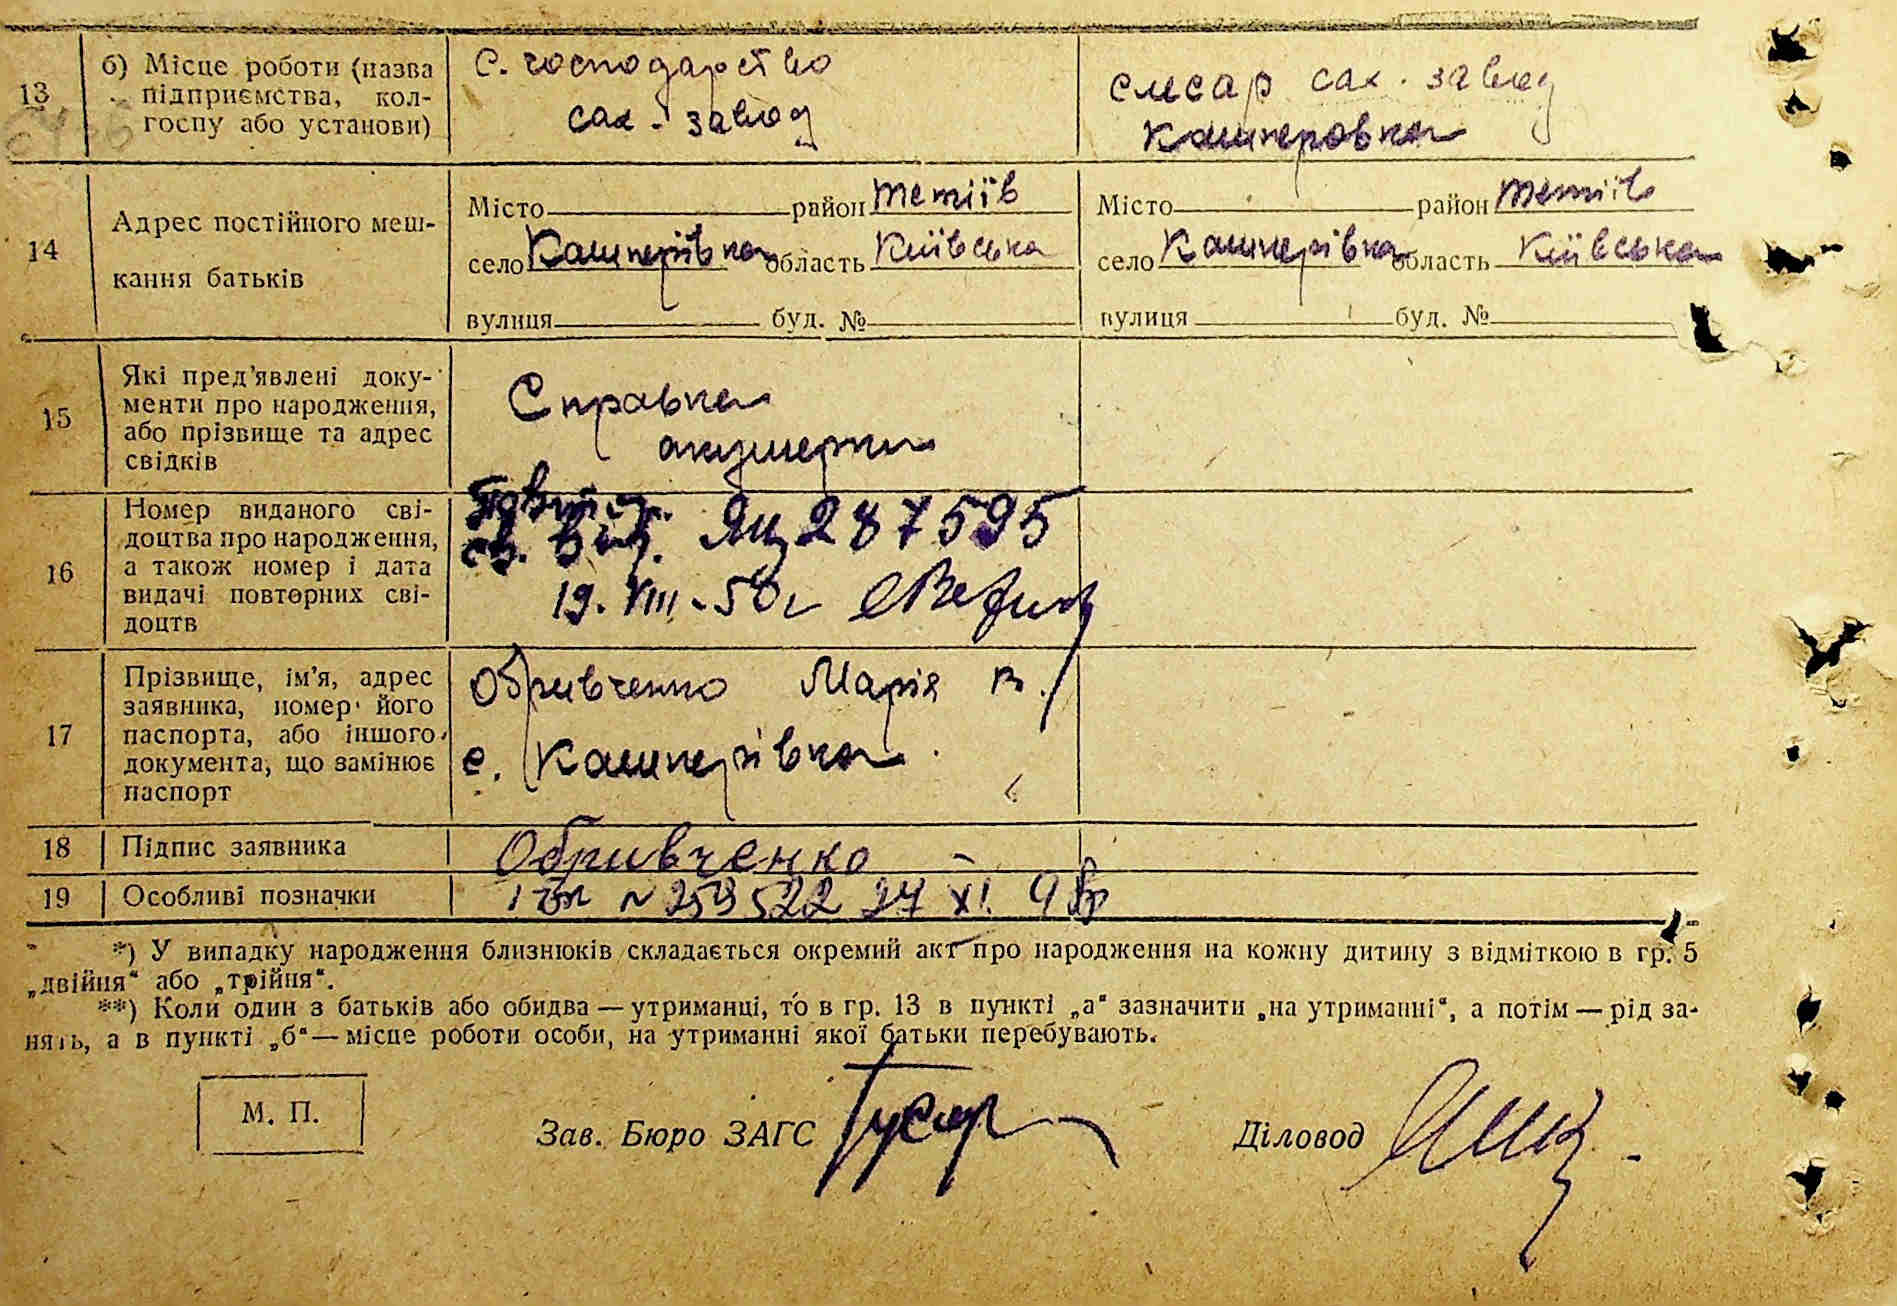 13 б) Місце роботи (назва підприємства, колгоспу або установи)
С. господарство
сах. завод
слесар сах. завод
Кашперовка
14 Адрес постійного меш-
кання батьків
Місто район Тетіїв
село Кашперівка область Київська
вулиця буд. №
Місто район Тетіїв
село Кашперівка область Київська
вулиця буд. №
15 Які пред'явлені доку-
менти про народження,
або прізвище та адрес
свідків
Справка
акушерки
16 Номер виданого сві-
доцтва про народження,
а також номер і дата
видачі повторних сві-
доцтв
св. вид. ЯЦ 287595
19. VIII - 50 г
17 Прізвище, ім'я, адрес
заявника, номер його
паспорта, або іншого
документа, що замінює
паспорт
Обривченко Марія В.
с. Кашперівка
18 Підпис заявника
Обривченко
19 Особливі позначки
N 259522 27 XI
*) У випадку народження близнюків складається окремий акт про народження на кожну дитину з відміткою в гр. 5
„двійня“ або „трійня“.
**) Коли один з батьків або обидва — утриманці, то в гр. 13 в пункті „а“ зазначити „на утриманні“, а потім — рід за-
нять, а в пункті „б“ — місце роботи особи, на утриманні якої батьки перебувають.
М. П.
Зав. Бюро ЗАГС Гусар
Діловод